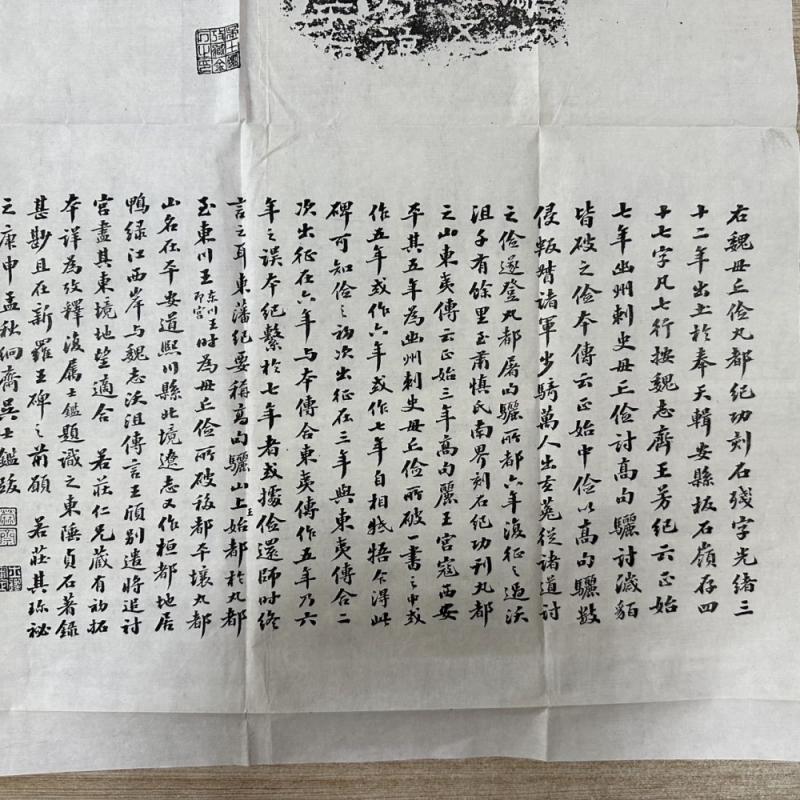 右魏毌丘儉丸都紀功刻石殘字光緒三
十二年出土於奉天輯安縣板石嶺存四
十七字凡七行按魏志齊王芳紀云正始
七年幽州刺史毌丘儉討高句驪討濊貊
皆破之儉本傳云正始中儉以高句驪數
侵叛督諸軍步騎萬人出玄菟從諸道討
之儉遂登丸都屠句驪所都六年復征之過沃
沮千有餘里至肅慎氏南界刻石紀功刊丸都
之山東夷傳云正始三年高句麗王宮寇西安
平其五年為幽州刺史毌丘儉所破一書之中或
作五年或作六年或作七年自相牴牾今得此
碑可知儉之初次出征在三年與東夷傳合二
次出征在六年與本傳合東夷傳作五年乃六
年之誤本紀繫於七年者或據儉還師時終
言之耳東藩紀要稱高句驪山上王始都於丸都
至東川王東川王即宮時為毌丘儉所破移都平壤丸都
山名在平安道熙川縣北境遼志又作桓都地居
鴨綠江西岸與魏志沃沮傳言王頎別遣將追討
宮盡其東境地望適合 若莊仁兄藏有初拓
本詳為攷釋復屬士鑑題識之東陲貞石著錄
甚尠且在新羅王碑之前願 若莊其珍祕
之庚申孟秋絅齋吳士鑑跋